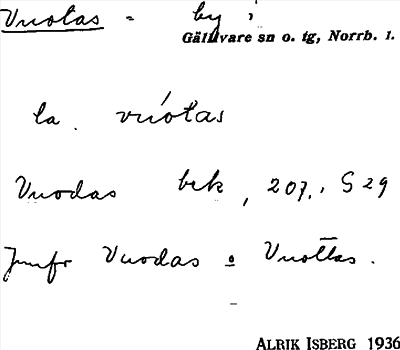 Vuotas - by i
Gällivare sn o. tg, Norrb. l.
la. vúotas
Vuodas bek, 207, S 29
Jmfr Vuodas o Vuottas.
ALRIK ISBERG 1936